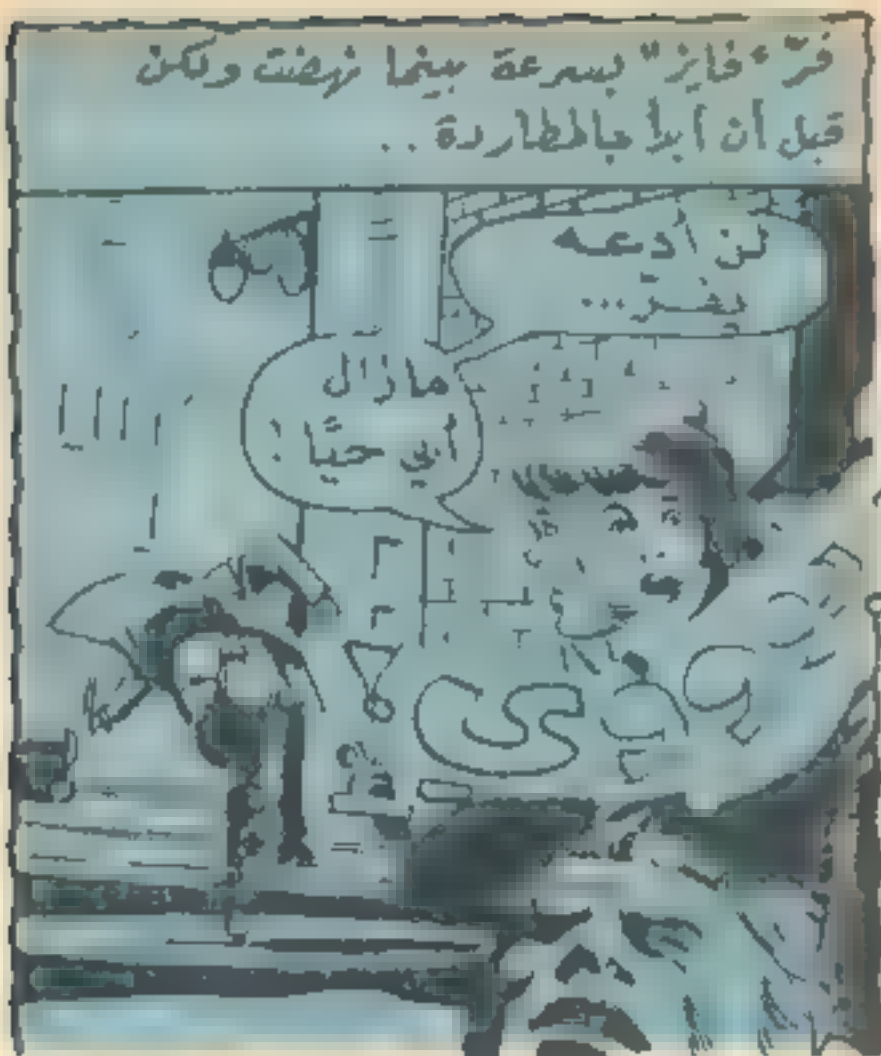 فرّ "فايز" بسرعة بينما نهضت ولكن
قبل أن أبدأ بالمطاردة ..
لن أدعه
يفرّ ...
مازال
أبي حيًّا !